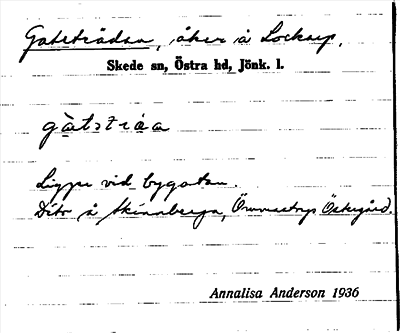 Gatsträdan, åker å Lockarp.
Skede sn, Östra hd, Jönk. l.
gàtstróa
Ligger vid bygatan.
Dito å Skinnberga, Ömmestorps Östergård.
Annalisa Anderson 1936